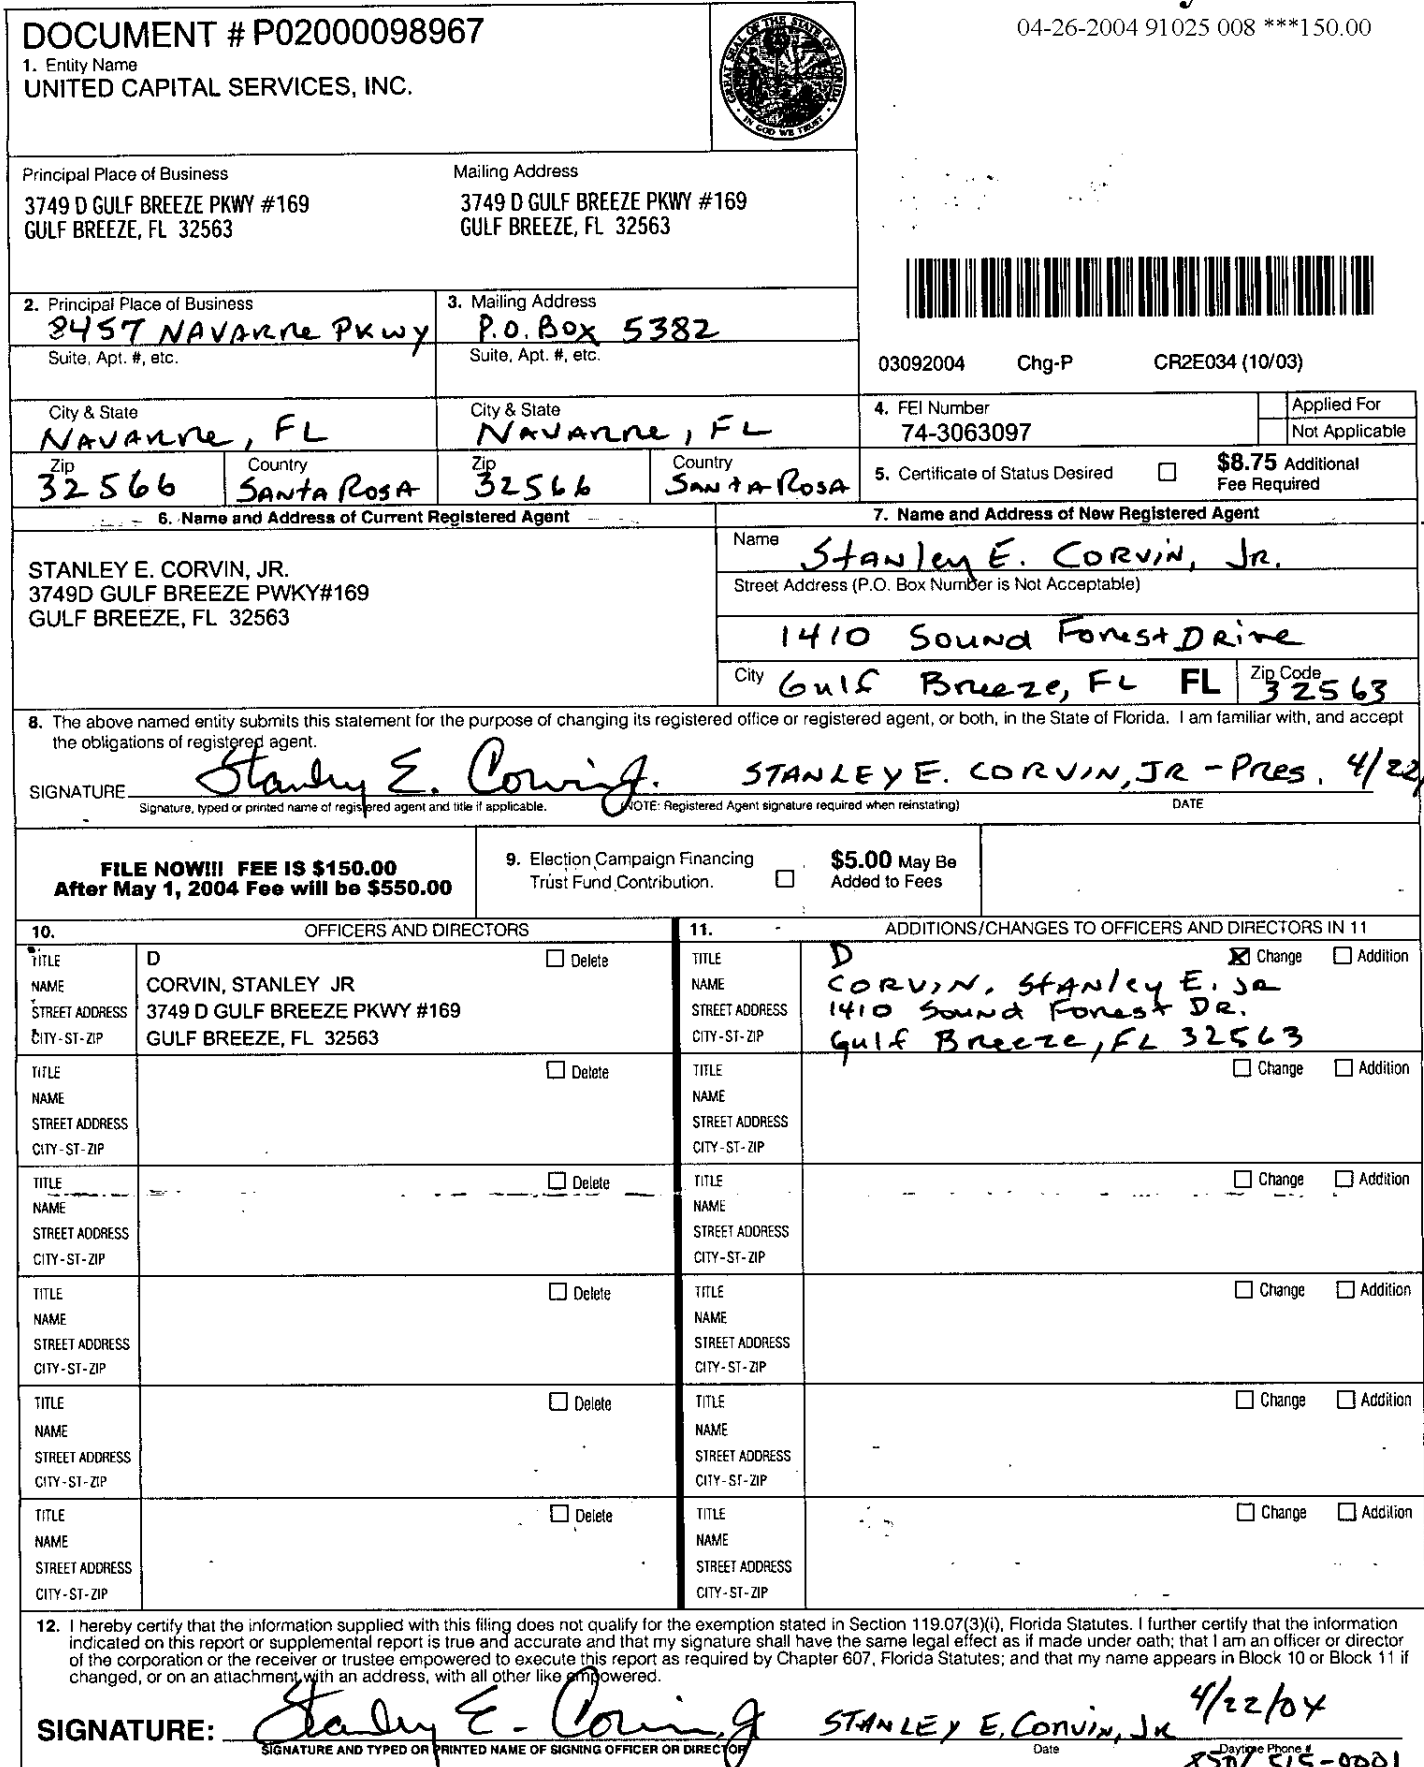 DOCUMENT # P02000098967
1. Entity Name
UNITED CAPITAL SERVICES, INC.
GREAT SEAL OF THE STATE OF FLORIDA
IN GOD WE TRUST
04-26-2004 91025 008 ***150.00
Principal Place of Business
3749 D GULF BREEZE PKWY #169
GULF BREEZE, FL 32563
Mailing Address
3749 D GULF BREEZE PKWY #169
GULF BREEZE, FL 32563
2. Principal Place of Business
8457 NAVARRE PKWY
Suite, Apt. #, etc.
3. Mailing Address
P.O. BOX 5382
Suite, Apt. #, etc.
03092004 Chg-P CR2E034 (10/03)
City & State
NAVARRE, FL
City & State
NAVARRE, FL
4. FEI Number
74-3063097
Applied For
Not Applicable
Zip
32566
Country
SANTA ROSA
Zip
32566
Country
SANTA ROSA
5. Certificate of Status Desired
$8.75 Additional
Fee Required
6. Name and Address of Current Registered Agent
STANLEY E. CORVIN, JR.
3749D GULF BREEZE PWKY#169
GULF BREEZE, FL 32563
7. Name and Address of New Registered Agent
Name Stanley E. Corvin, Jr.
Street Address (P.O. Box Number is Not Acceptable)
1410 Sound Forest Drive
City Gulf Breeze, FL FL Zip Code 32563
8. The above named entity submits this statement for the purpose of changing its registered office or registered agent, or both, in the State of Florida. I am familiar with, and accept
the obligations of registered agent.
SIGNATURE Stanley E. Corvin Jr. STANLEY E. CORVIN, JR - Pres. 4/22/
Signature, typed or printed name of registered agent and title if applicable. (NOTE: Registered Agent signature required when reinstating) DATE
FILE NOW!!! FEE IS $150.00
After May 1, 2004 Fee will be $550.00
9. Election Campaign Financing
Trust Fund Contribution.
$5.00 May Be
Added to Fees
10. OFFICERS AND DIRECTORS
TITLE D Delete
NAME CORVIN, STANLEY JR
STREET ADDRESS 3749 D GULF BREEZE PKWY #169
CITY-ST-ZIP GULF BREEZE, FL 32563
TITLE Delete
NAME
STREET ADDRESS
CITY-ST-ZIP
TITLE Delete
NAME
STREET ADDRESS
CITY-ST-ZIP
TITLE Delete
NAME
STREET ADDRESS
CITY-ST-ZIP
TITLE Delete
NAME
STREET ADDRESS
CITY-ST-ZIP
TITLE Delete
NAME
STREET ADDRESS
CITY-ST-ZIP
11. ADDITIONS/CHANGES TO OFFICERS AND DIRECTORS IN 11
TITLE D Change Addition
NAME CORVIN, Stanley E. JR
STREET ADDRESS 1410 Sound Forest DR.
CITY-ST-ZIP Gulf Breeze, FL 32563
TITLE Change Addition
NAME
STREET ADDRESS
CITY-ST-ZIP
TITLE Change Addition
NAME
STREET ADDRESS
CITY-ST-ZIP
TITLE Change Addition
NAME
STREET ADDRESS
CITY-ST-ZIP
TITLE Change Addition
NAME
STREET ADDRESS
CITY-ST-ZIP
TITLE Change Addition
NAME
STREET ADDRESS
CITY-ST-ZIP
12. I hereby certify that the information supplied with this filing does not qualify for the exemption stated in Section 119.07(3)(i), Florida Statutes. I further certify that the information
indicated on this report or supplemental report is true and accurate and that my signature shall have the same legal effect as if made under oath; that I am an officer or director
of the corporation or the receiver or trustee empowered to execute this report as required by Chapter 607, Florida Statutes; and that my name appears in Block 10 or Block 11 if
changed, or on an attachment with an address, with all other like empowered.
SIGNATURE: Stanley E. Corvin, Jr STANLEY E. Corvin, JR 4/22/04
SIGNATURE AND TYPED OR PRINTED NAME OF SIGNING OFFICER OR DIRECTOR Date Daytime Phone #
850/ 515-0001